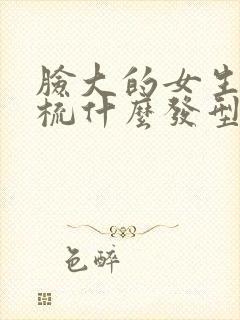 臉大的女生
梳什麼發型
色醉